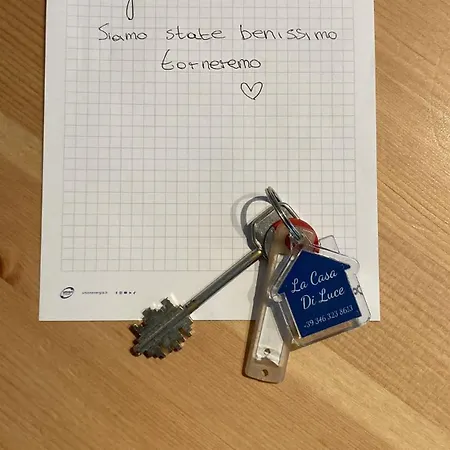 Siamo state benissimo
torneremo
♡
La Casa
Di Luce
+39 346 323 8613